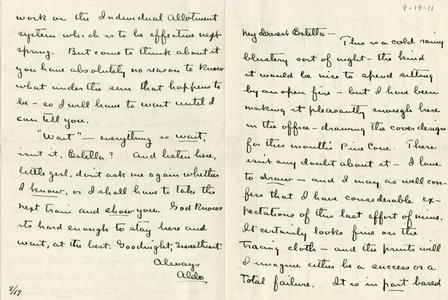 9-19-11
My dearest Estella-
This is a cold rainy
blustery sort of night - the kind
it would be nice to spend sitting
by an open fire - but I have been
making it pleasantly enough here
in the office - drawing the cover design
for this month's Pine Cone. There
isn't any doubt about it - I love
to draw - and I may as well con-
fess that I have considerable ex-
pectations of this last effort of mine.
It certainly looks fine on the
tracing cloth - and the prints will
I imagine either be a success or a
total failure. It is in part based
work on the Individual Allotment
system which is to be effective next
spring. But come to think about it
you have absolutely no reason to know
what under the sun that happens to
be - so I will have to wait until I
can tell you.
"Wait" - everything is wait,
isn't it, Estella? And listen here,
little girl, don't ask me again whether
I know, or I shall have to take the
next train and show you. God knows
its hard enough to stay here and
wait, at the best. Goodnight, sweetheart.
Always
Aldo
9/19